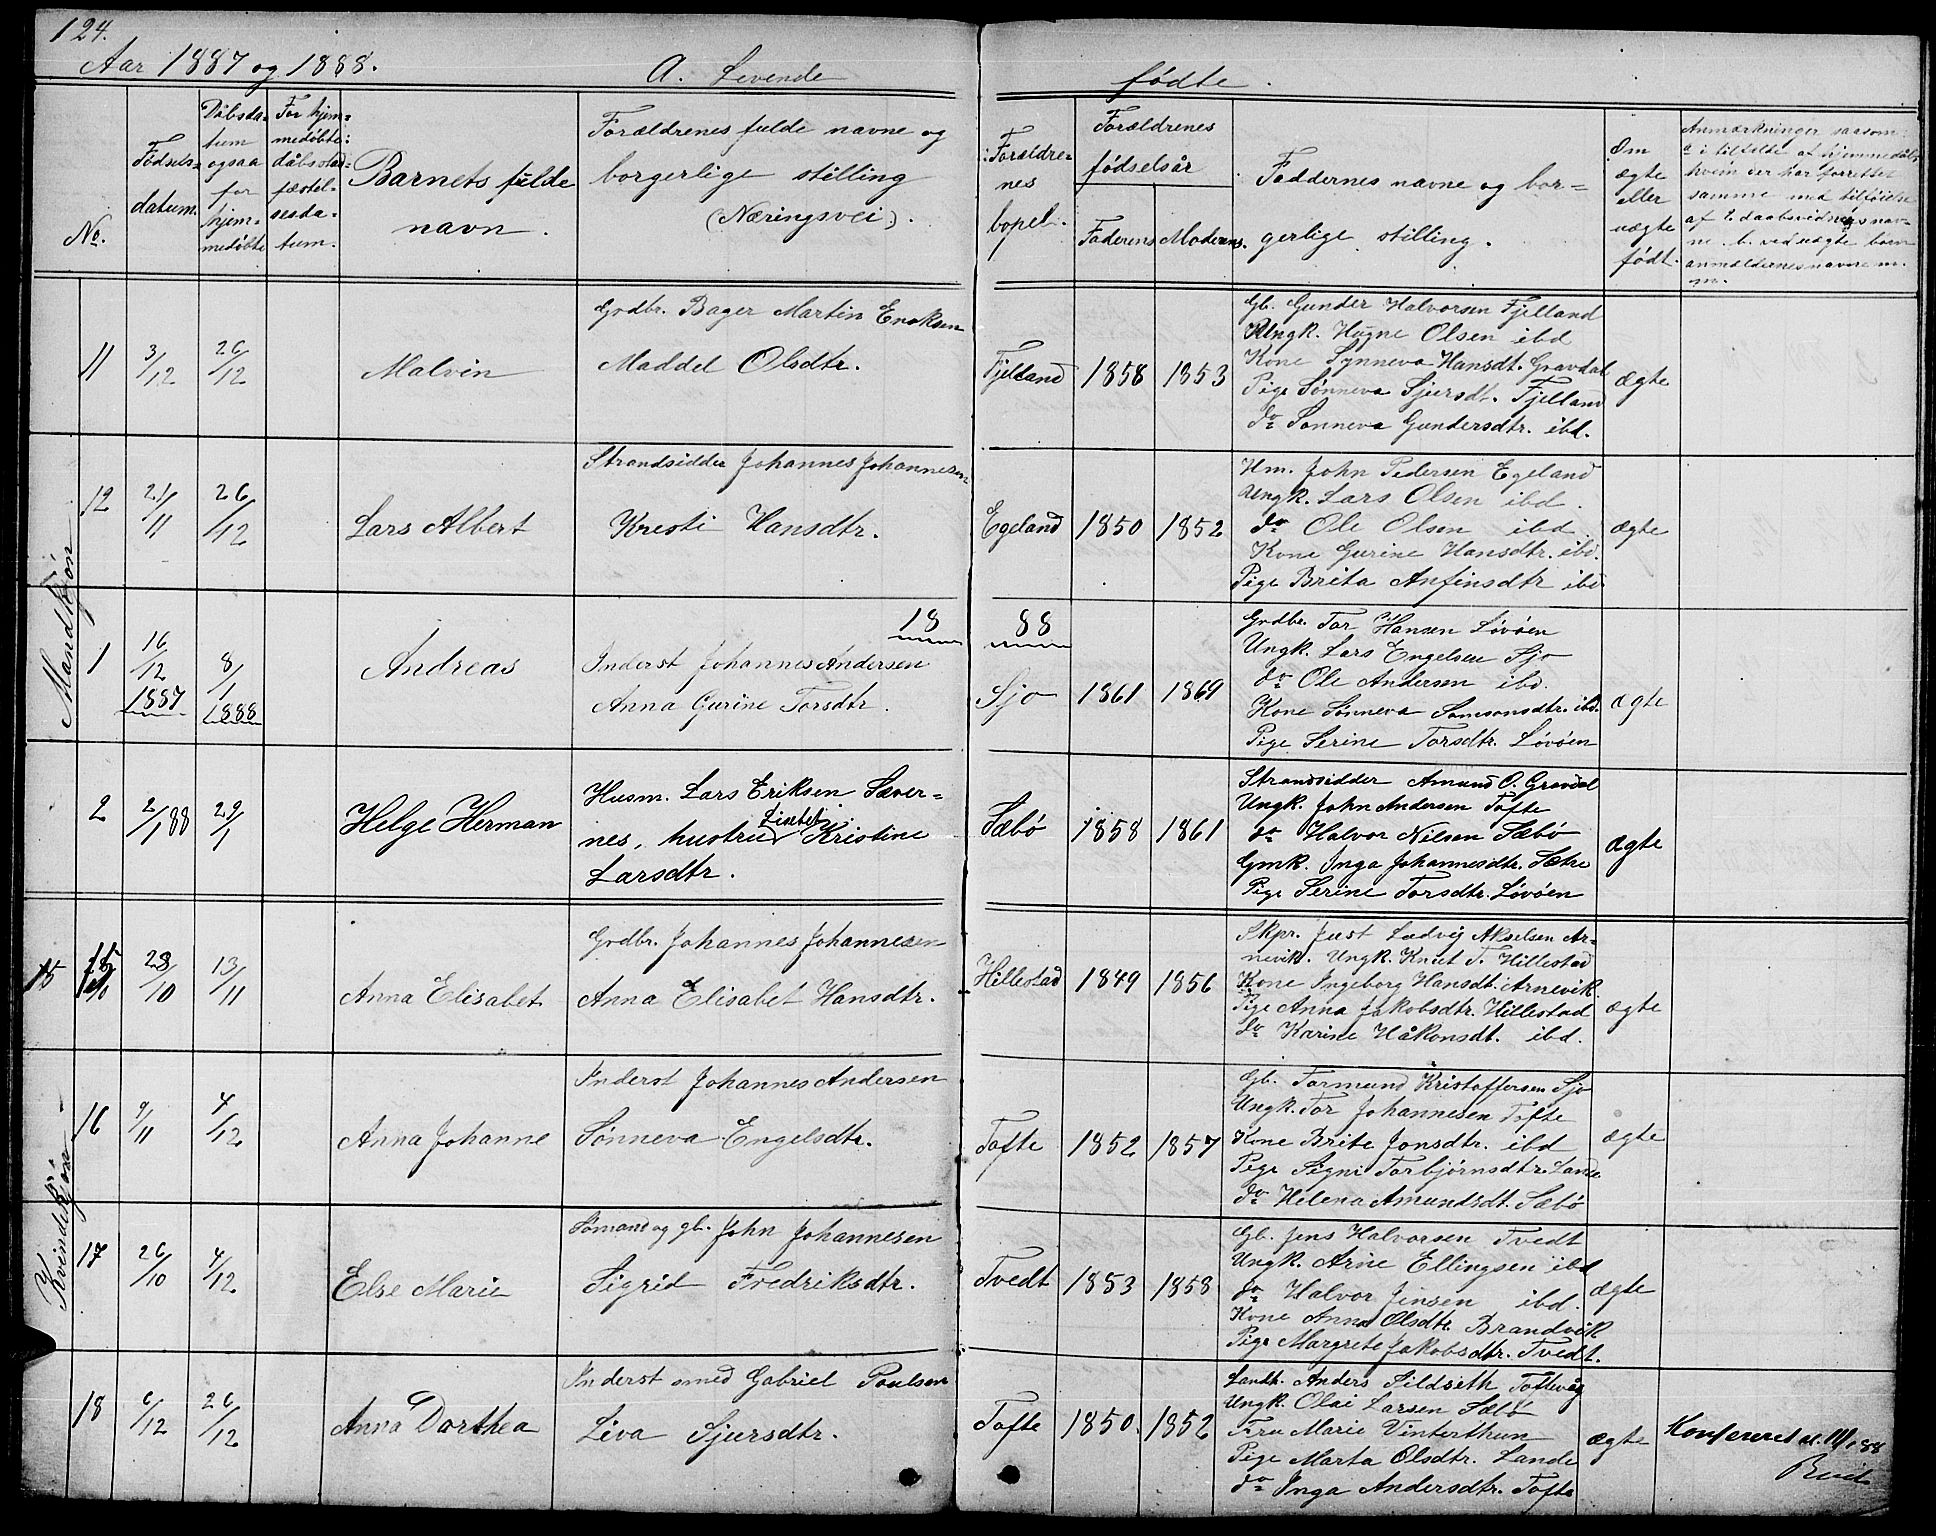 124.
Aar 1887 og 1888.
A. Levende
fødte.
No.
Fødsels-
datum.
Dåbsda-
tum
ogsaa
for
hjem-
medøbte
For hjem-
medøbte:
dåbsstad-
fæstel-
sesda-
tum.
Barnets fulde
navn.
Forældrenes fulde navne og
borgerlige stilling
(Næringsvei).
Forældre-
nes
bopel.
Forældrenes
fødselsår
Faderens Moderens.
Faddernes navne og bor-
gerlige stilling.
Om
ægte
eller
uægte
født.
Anmærkninger saasom:
a i tilfelde af hjemmedåb,
hvem der har forrettet
samme med tilføielse
af 2 daabsvidners nav-
ne. b. ved uægte børn
anmeldernes navne m.
m.
Mandkjøn
11
3/12
26/12
Malvin
Grdbr. Bager Martin Enoksen
Maddel Olsdtr.
Fjelland
1858
1853
Gb. Gunder Halvorsen Fjelland
Ungk. Hugne Olsen ibd
Kone Synneva Hansdt. Gravdal
Pige Sønneva Sjursdt. Fjelland
do Sønneva Gundersdtr. ibd.
ægte
12
21/11
26/12
Lars Albert
Strandsidder Johannes Johannesen
Kresti Hansdtr.
Egeland
1850
1852
Hm. John Pedersen Egeland
Ungk. Lars Olsen ibd.
do Ole Olsen ibd
Kone Gurine Hansdtr. ibd.
Pige Brita Anfinsdtr ibd
ægte
18 88
1
16/12
1887
8/1
1888
Andreas
Inderst Johannes Andersen
Anna Gurine Torsdtr.
Sjo
1861
1869
Grdbr. Tor Hansen Løvøen
Ungk. Lars Engelsen Sjo
do Ole Andersen ibd.
Kone Sønneva Samsonsdtr. ibd.
Pige Serine Torsdtr. Løvøen
ægte
2
2/1 88
29/1
Helge Herman
Husm. Lars Eriksen Sæver-
nes, hustru Kristine
Larsdtr.
Sæbö
1858
1861
Strandsidder Amund O. Gravdal
Ungk. John Andersen Tofte
do Halvor Nilsen Sæbö
Gmk. Inga Johannesdtr. Sætre
Pige Serine Torsdtr. Løvøen
ægte
Kvindekjøn
15
15
28/10
13/11
Anna Elisabet
Grdbr. Johannes Johannesen
Anna Elisabet Hansdtr.
Hillestad
1849
1856
Skpr. Just Ludvig Akselsen Ar-
nevik. Ungk. Knut T. Hillestad
Kone Ingeborg Hansdt. Arnevik
Pige Anna Jakobsdtr. Hillestad
do Karine Håkonsdt. ibd.
ægte
16
9/11
4/12
Anna Johanne
Inderst Johannes Andersen
Sønneva Engelsdtr.
Tofte
1852
1857
Gb. Tormund Kristoffersen Sjo
Ungk. Tor Johannesen Tofte
Kone Brite Jonsdtr. ibd
Pige Signi Torbjørnsdtr. Lande
do Helena Amundsdt. Sæbö
ægte
17
26/10
4/12
Else Marie
Sømand og gb. John Johannesen
Sigrid Fredriksdtr.
Tvedt
1853
1858
Gb. Jens Halvorsen Tvedt
Ungk. Arne Ellingsen ibd
do Halvor Jensen ibd.
Kone Anna Olsdtr. Brandvik
Pige Margrete Jakobsdtr. Tvedt.
ægte
18
6/12
26/12
Anna Dorthea
Inderst smed Gabriel Poulsen
Liva Sjursdtr.
Tofte
1850.
1852
Landh. Anders Sildseth Toftevåg
Ungk. Olai Larsen Sæbø
Fru Marie Vinterthun
Pige Marta Olsdtr. Lande
do Inga Andersdtr. Tofte
ægte
Konfereret